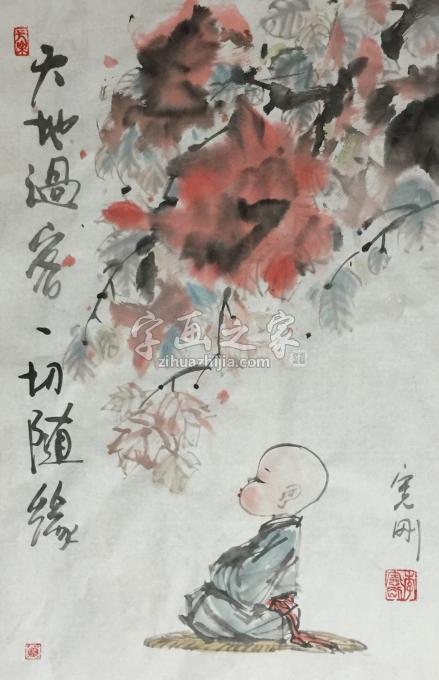 天地過客一切随缘
宪刚
字画之家
zihuazhijia.com